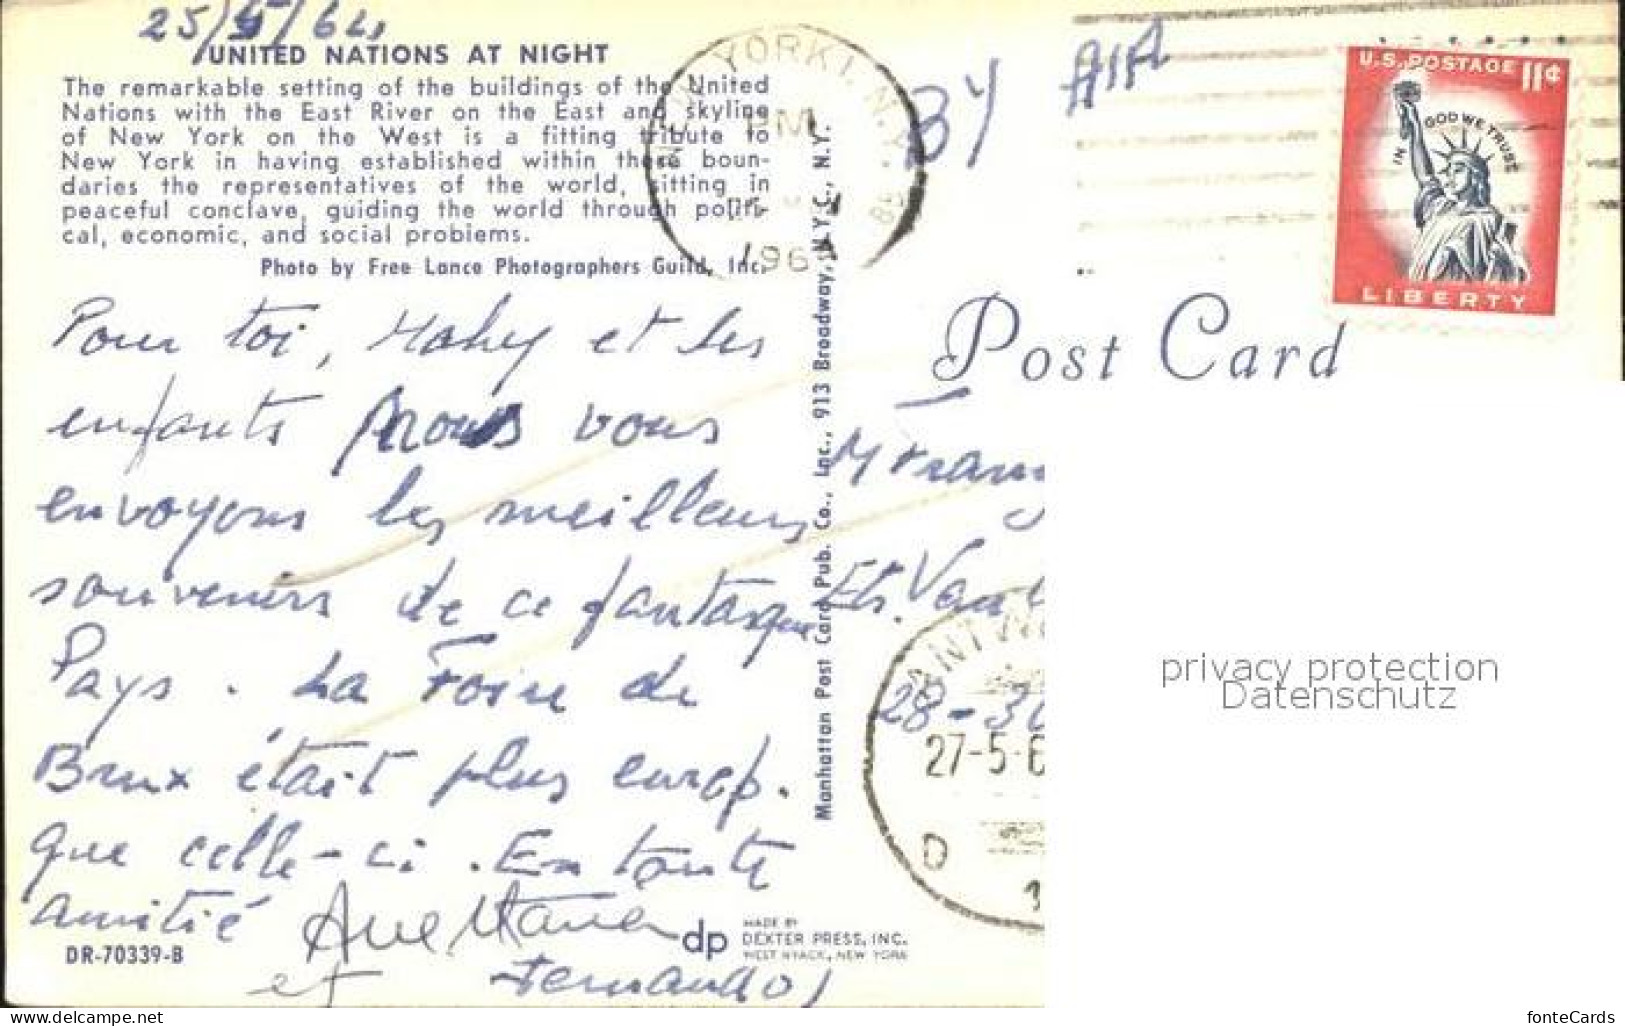 25/5/64
UNITED NATIONS AT NIGHT
The remarkable setting of the buildings of the United
Nations with the East River on the East and skyline
of New York on the West is a fitting tribute to
New York in having established within these boun-
daries the representatives of the world, sitting in
peaceful conclave, guiding the world through politi-
cal, economic, and social problems.
Photo by Free Lance Photographers Guild, Inc.
Pour toi, et les
enfants nous vous
envoyons les meilleurs
souvenirs de ce fantasque
Pays. La Foire de
Brux était plus europ.
que celle-ci. En toute
amitié
et Fernando
DR-70339-B
dp
MADE BY
DEXTER PRESS, INC.
WEST NYACK, NEW YORK
Manhattan Post Card Pub. Co., Inc., 913 Broadway, N.Y.C., N.Y.
YORK 1, N.Y.
PM
196
BY AIR
U.S. POSTAGE 11¢
IN GOD WE TRUST
LIBERTY
Post Card
M Fran
Ets. Van
28-30
ANTW
27-5-6
D
1
privacy protection
Datenschutz
delcampe.net
fonteCards